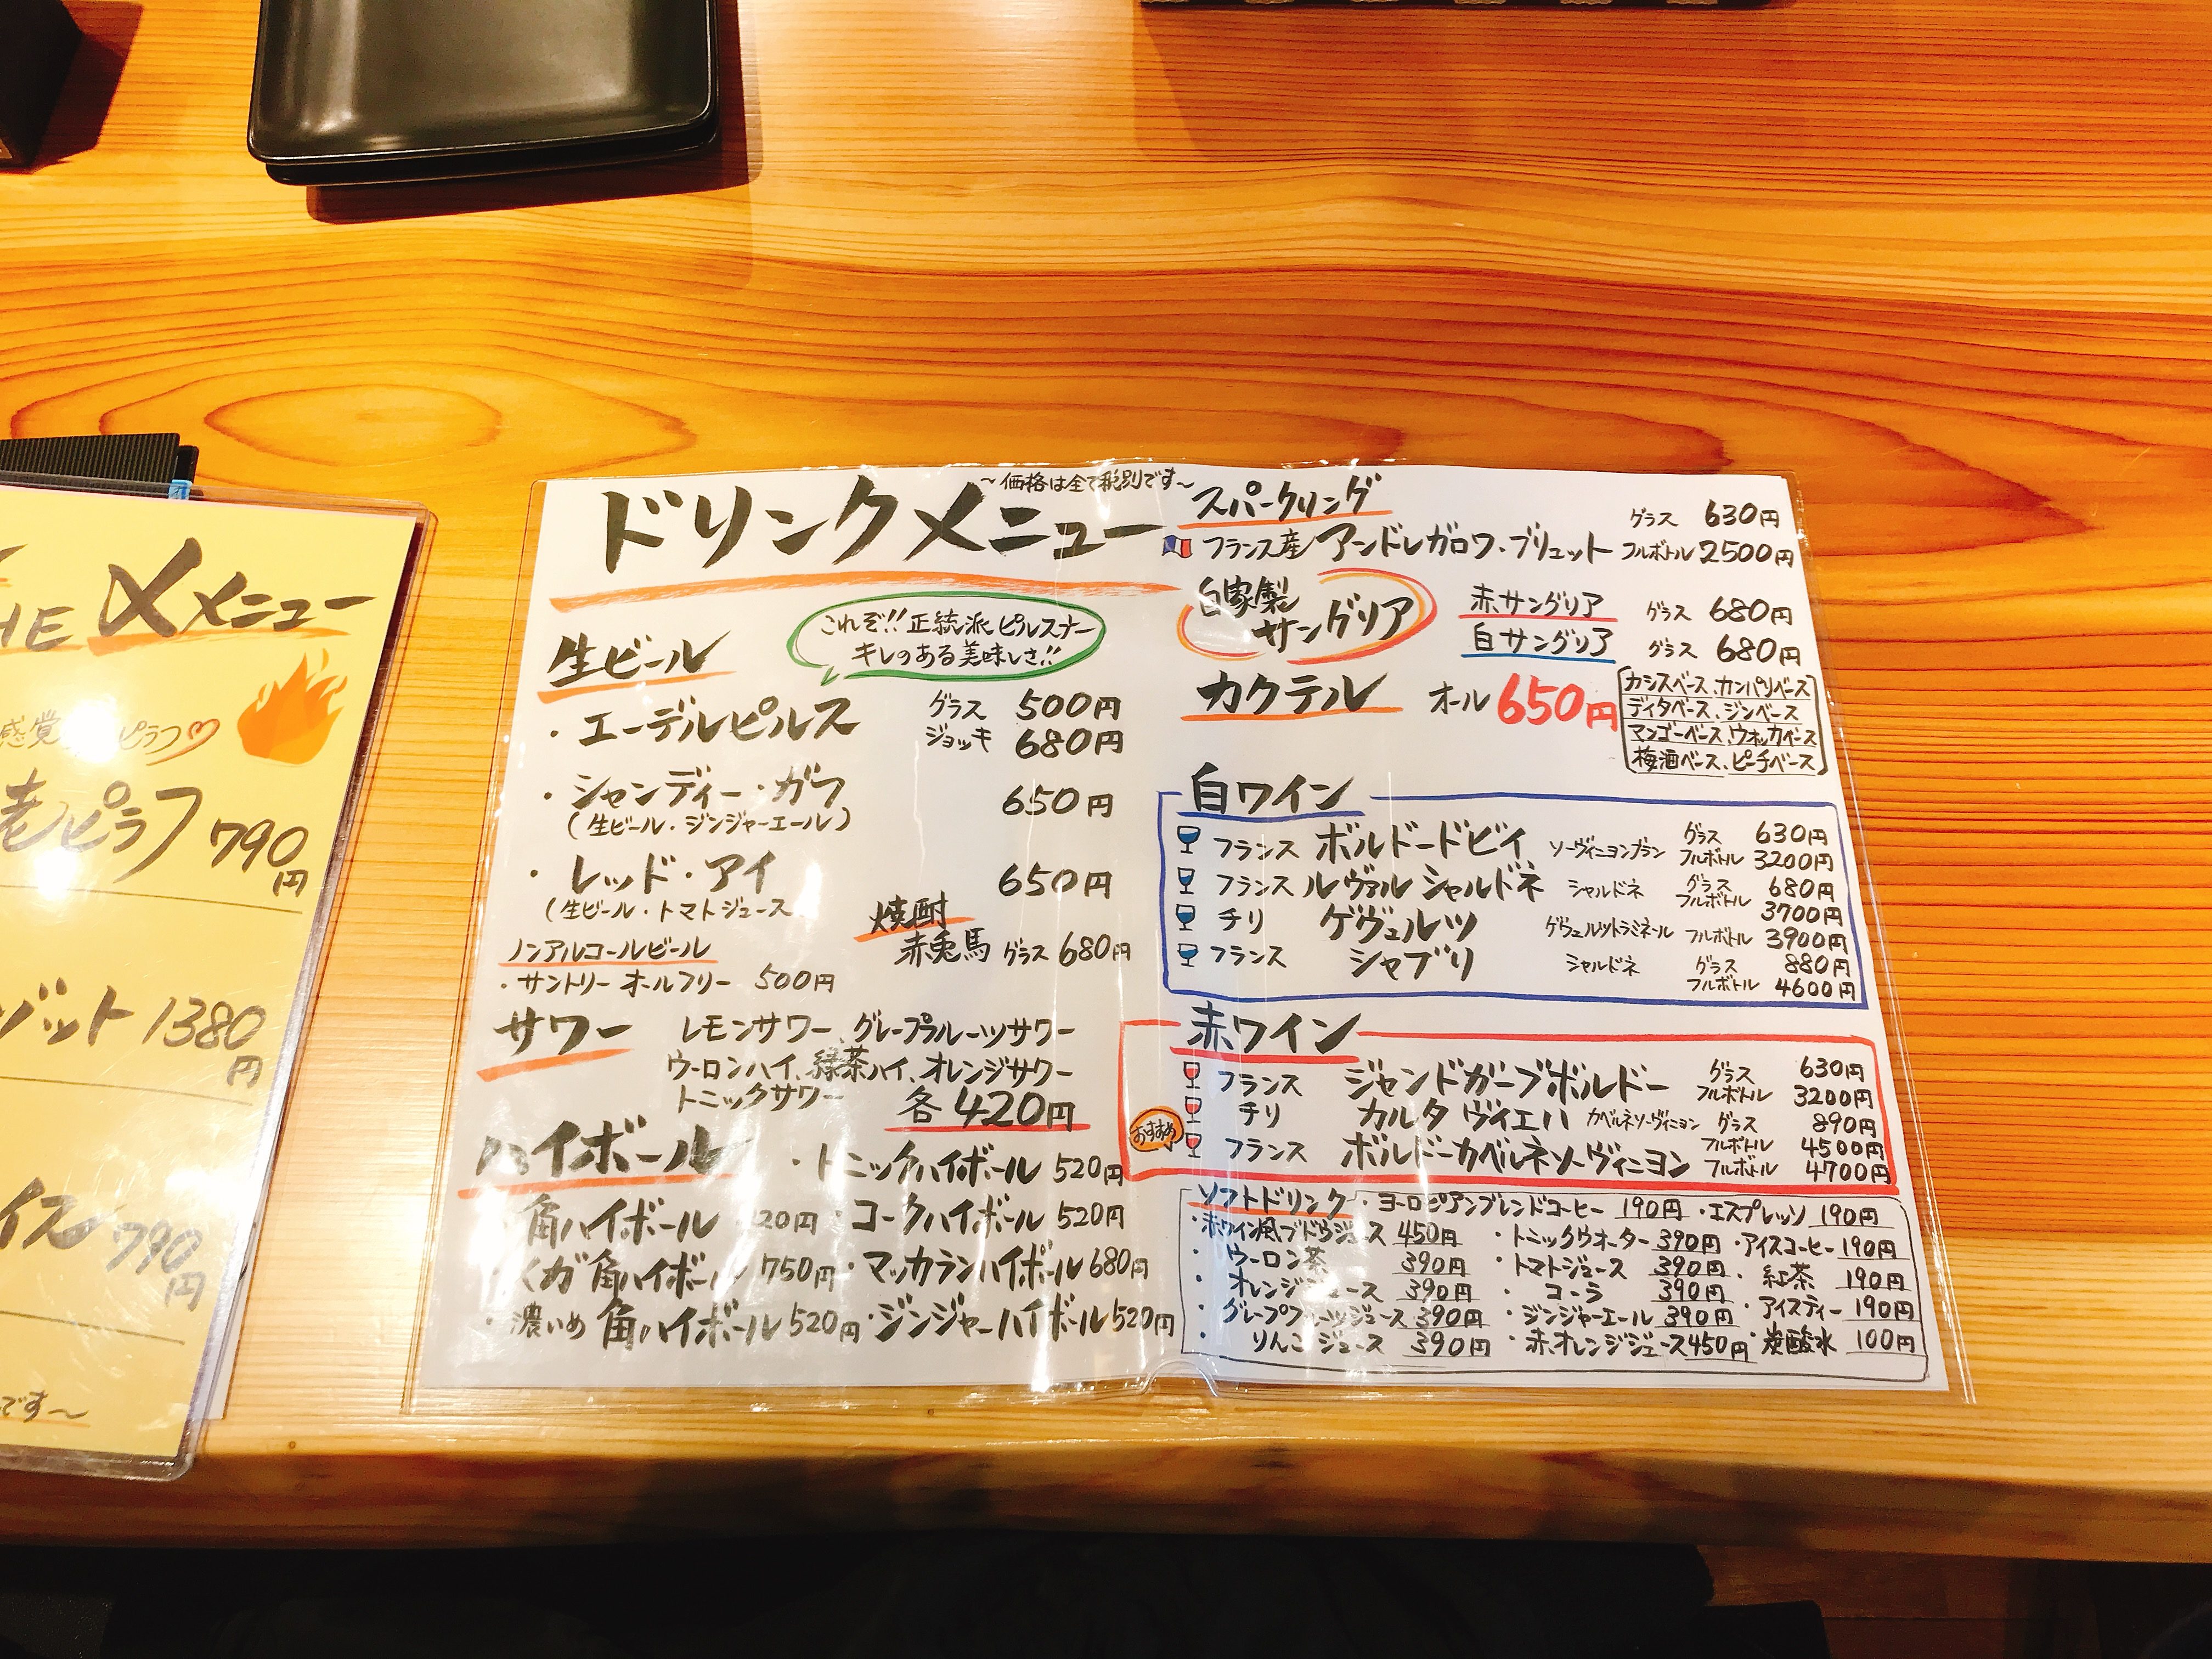 HE 〆メニュー
感覚 ピラフ
ピラフ 790円
ゾット 1380円
イス 790円
です〜
〜価格は全て税別です〜
ドリンクメニュー
これぞ!!正統派ピルスナー
キレのある美味しさ!!
生ビール
・エーデルピルス グラス 500円
ジョッキ 680円
・シャンディー・ガフ 650円
(生ビール・ジンジャーエール)
・レッド・アイ 650円
(生ビール・トマトジュース
焼酎
赤兎馬 グラス 680円
ノンアルコールビール
・サントリー オールフリー 500円
サワー レモンサワー、グレープフルーツサワー
ウーロンハイ、緑茶ハイ、オレンジサワー
トニックサワー 各420円
ハイボール ・トニックハイボール 520円
角ハイボール 20円 ・コークハイボール 520円
メガ角ハイボール 750円 ・マッカランハイボール 680円
・濃いめ 角ハイボール 520円 ・ジンジャーハイボール 520円
スパークリング
グラス 630円
フランス産 アンドレガロワ・ブリュット フルボトル 2500円
自家製
サングリア
赤サングリア グラス 680円
白サングリア グラス 680円
カクテル オール 650円
カシスベース、カンパリベース
ディタベース、ジンベース
マンゴーベース、ウォッカベース
梅酒ベース、ピーチベース
白ワイン
フランス ボルドードビィ ソーヴィニヨンブラン グラス 630円
フルボトル 3200円
フランス ルヴァル シャルドネ シャルドネ グラス 680円
フルボトル 3700円
チリ ゲヴュルツ ゲヴュルットトラミネール フルボトル 3900円
フランス シャブリ シャルドネ グラス 880円
フルボトル 4600円
赤ワイン
フランス ジャンドガーブボルドー グラス 630円
フルボトル 3200円
チリ カルタ ヴィエハ カベルネソーヴィニヨン グラス 890円
フルボトル 4500円
おすすめ フランス ボルドーカベルネソーヴィニヨン フルボトル 4700円
ソフトドリンク ・ヨーロピアンブレンドコーヒー 190円 ・エスプレッソ 190円
・赤ワイン風ブドウジュース 450円 ・トニックウオーター 390円 ・アイスコーヒー 190円
・ウーロン茶 390円 ・トマトジュース 390円 ・紅茶 190円
・オレンジジュース 390円 ・コーラ 390円
・グレープフルーツジュース 390円 ・ジンジャーエール 390円 ・アイスティー 190円
・りんごジュース 390円 ・赤オレンジジュース 450円 ・炭酸水 100円